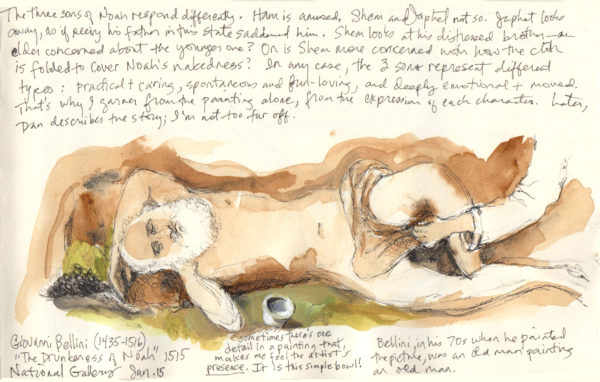 The three sons of Noah respond differently. Ham is amused, Shem and Japhet not so. Japhet looks
away, as if seeing his father in this state saddened him. Shem looks at his distressed brother—an
elder concerned about the younger one? Or is Shem more concerned with how the cloth
is folded to cover Noah's nakedness? In any case, the 3 sons represent different
types: practical + caring, spontaneous and fun-loving, and deeply emotional + moved.
That's why I garner from the painting alone, from the expression of each character. Later,
Dan describes the story; I'm not too far off.
Giovanni Bellini (1435-1516)
"The Drunkeness of Noah" 1515
National Gallery Jan. 15
Sometimes there's one
detail in a painting that
makes me feel the artist's
presence. It is this simple bowl!
Bellini, in his 70s when he painted
the picture, was an old man painting
an old man.